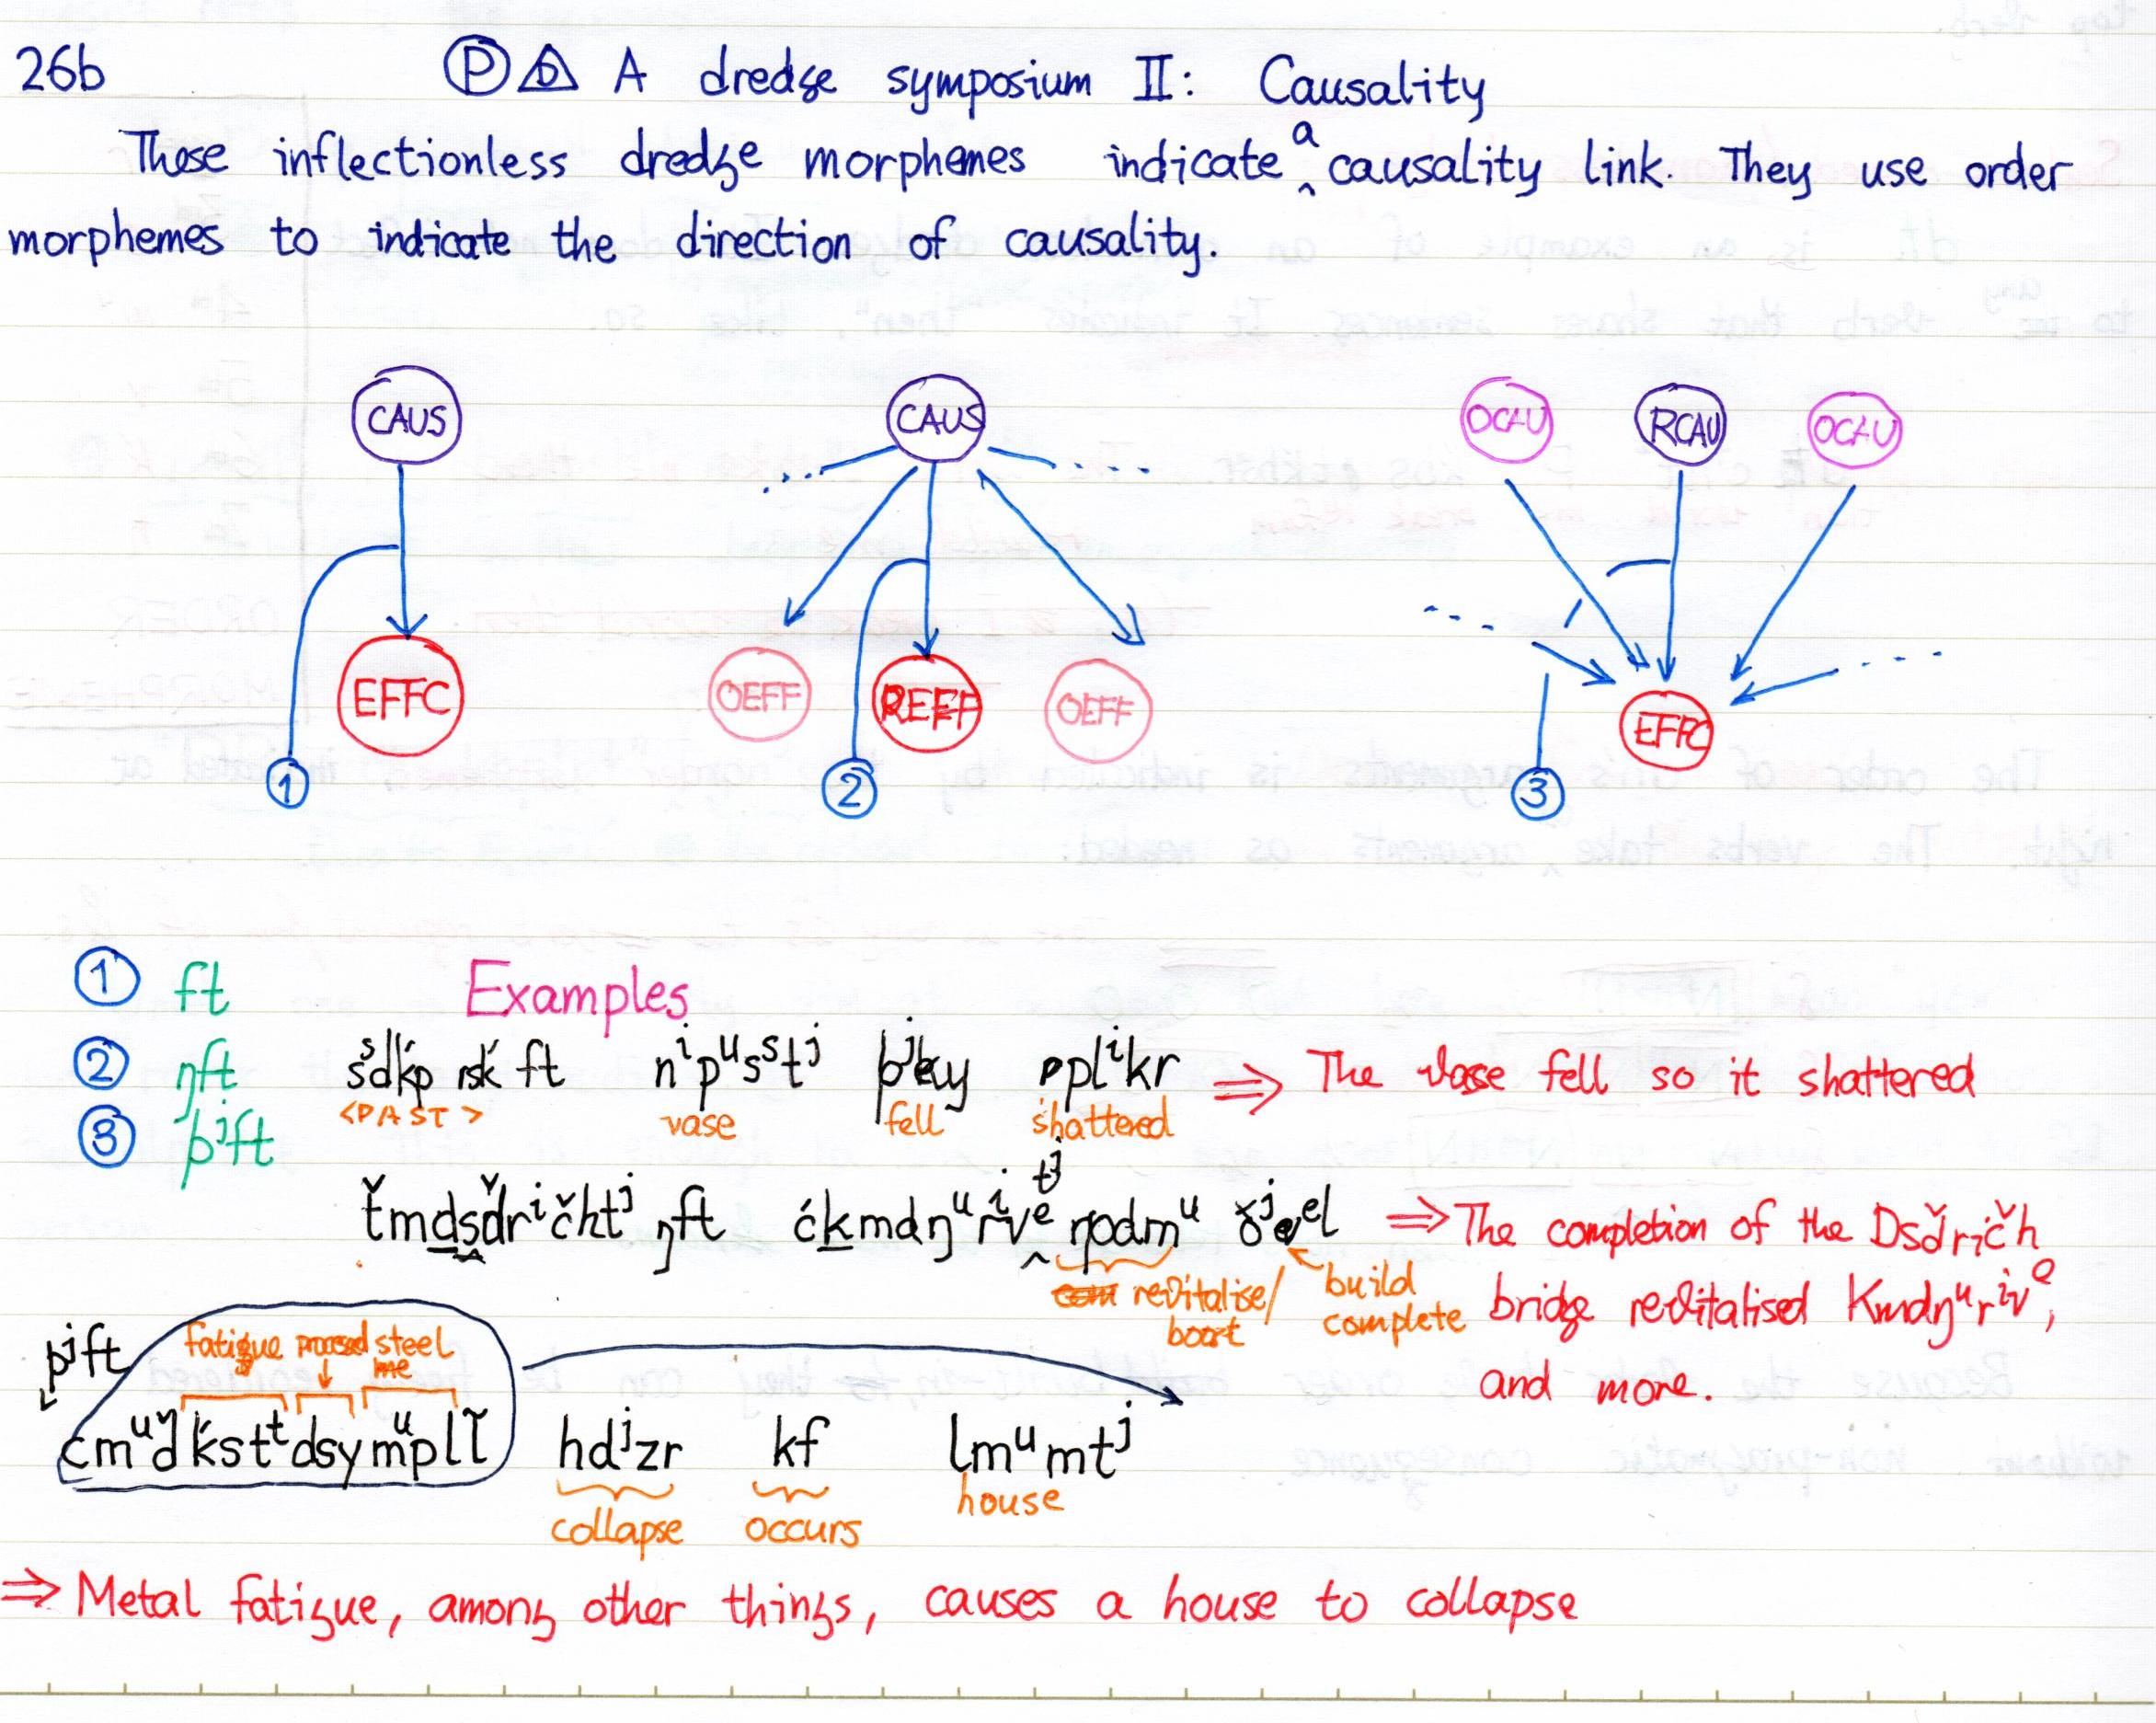 26b Ⓟ A dredge symposium II: Causality
These inflectionless dredge morphemes indicate a causality link. They use order
morphemes to indicate the direction of causality.
CAUS CAUS OCAU RCAU OCAU
EFFC OEFF REFF OEFF EFFC
1 2 3
① ft Examples
② ŋft ft nⁱpᵘsˢtʲ pplⁱkr ⇒ The vase fell so it shattered
<PAST> vase fell shattered
③ þʲft
ŋft ⇒ The completion of the Dsďrⁱčh
revitalise/ boost build complete bridge revitalised Kmdŋᵘrⁱvᵉ,
and more.
þʲft fatigue steel
hdʲzr kf lmᵘmtʲ
collapse occurs house
⇒ Metal fatigue, among other things, causes a house to collapse